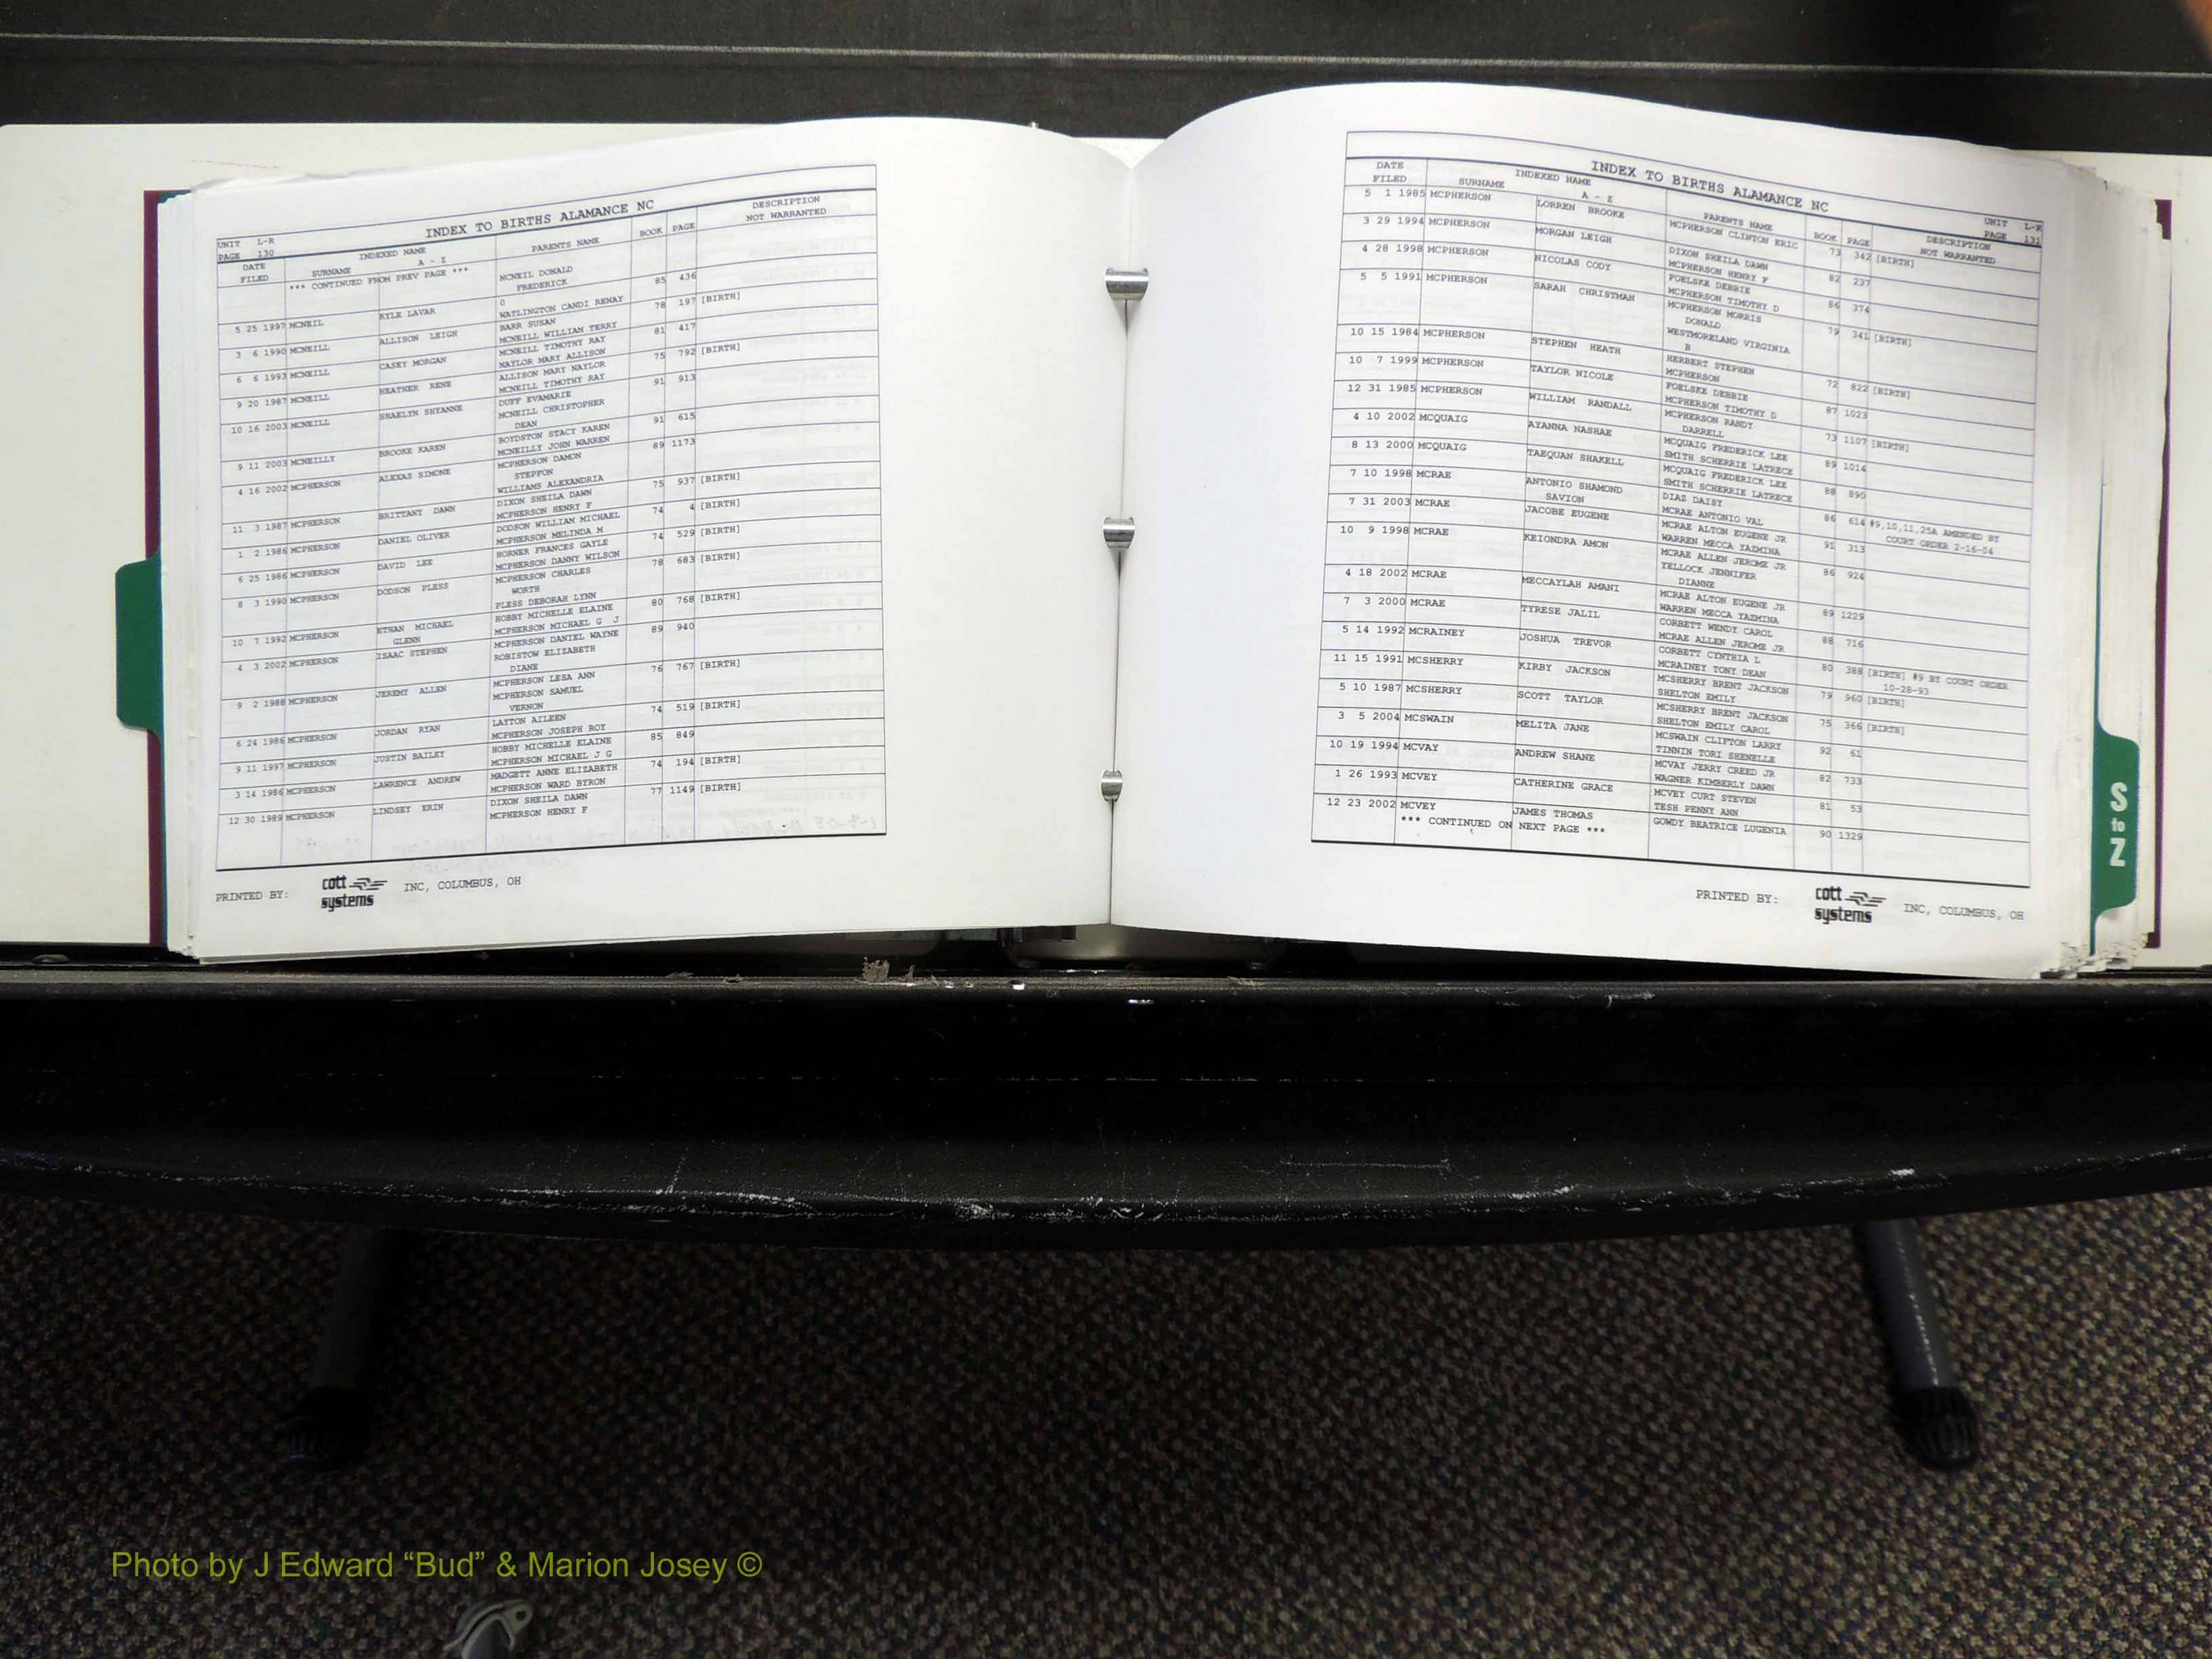 INDEX TO BIRTHS ALAMANCE NC
UNIT L-R
PAGE 130
DATE FILED SURNAME INDEXED NAME A - Z PARENTS NAME BOOK PAGE DESCRIPTION NOT WARRANTED
*** CONTINUED FROM PREV PAGE ***
MCNEIL DONALD
FREDERICK
5 25 1997 MCNEIL KYLE LAVAR 0 85 436
WATLINGTON CANDI RENAY
3 6 1990 MCNEILL ALLISON LEIGH BARR SUSAN 78 197 [BIRTH]
MCNEILL WILLIAM TERRY
6 6 1993 MCNEILL CASEY MORGAN MCNEILL TIMOTHY RAY 81 417
NAYLOR MARY ALLISON
9 20 1987 MCNEILL HEATHER RENE ALLISON MARY NAYLOR 75 792 [BIRTH]
MCNEILL TIMOTHY RAY
10 16 2003 MCNEILL SHAELYN SHYANNE DUFF EVAMARIE 91 913
MCNEILL CHRISTOPHER
DEAN
9 11 2003 MCNEILLY BROOKE KAREN BOYDSTON STACY KAREN 91 615
MCNEILLY JOHN WARREN
4 16 2002 MCPHERSON ALEXAS SIMONE MCPHERSON DAMON 89 1173
STEPFON
WILLIAMS ALEXANDRIA
11 3 1987 MCPHERSON BRITTANY DAWN DIXON SHEILA DAWN 75 937 [BIRTH]
MCPHERSON HENRY F
1 2 1986 MCPHERSON DANIEL OLIVER DODSON WILLIAM MICHAEL 74 4 [BIRTH]
MCPHERSON MELINDA M
6 25 1986 MCPHERSON DAVID LEE HORNER FRANCES GAYLE 74 529 [BIRTH]
MCPHERSON DANNY WILSON
8 3 1990 MCPHERSON DODSON PLESS MCPHERSON CHARLES 78 683 [BIRTH]
WORTH
PLESS DEBORAH LYNN
10 7 1992 MCPHERSON ETHAN MICHAEL HOBBY MICHELLE ELAINE 80 768 [BIRTH]
GLENN MCPHERSON MICHAEL G J
4 3 2002 MCPHERSON ISAAC STEPHEN MCPHERSON DANIEL WAYNE 89 940
ROBISTOW ELIZABETH
DIANE
9 2 1988 MCPHERSON JEREMY ALLEN MCPHERSON LESA ANN 76 767 [BIRTH]
MCPHERSON SAMUEL
VERNON
6 24 1986 MCPHERSON JORDAN RYAN LAYTON AILEEN 74 519 [BIRTH]
MCPHERSON JOSEPH ROY
9 11 1997 MCPHERSON JUSTIN BAILEY HOBBY MICHELLE ELAINE 85 849
MCPHERSON MICHAEL J G
3 14 1986 MCPHERSON LAWRENCE ANDREW MADGETT ANNE ELIZABETH 74 194 [BIRTH]
MCPHERSON WARD BYRON
12 30 1989 MCPHERSON LINDSEY ERIN DIXON SHEILA DAWN 77 1149 [BIRTH]
MCPHERSON HENRY F
PRINTED BY: cott systems INC, COLUMBUS, OH
INDEX TO BIRTHS ALAMANCE NC
UNIT L-R
PAGE 131
DATE FILED SURNAME INDEXED NAME A - Z PARENTS NAME BOOK PAGE DESCRIPTION NOT WARRANTED
5 1 1985 MCPHERSON LORREN BROOKE MCPHERSON CLINTON ERIC 73 342 [BIRTH]
3 29 1994 MCPHERSON MORGAN LEIGH DIXON SHEILA DAWN 82 237
MCPHERSON HENRY F
4 28 1998 MCPHERSON NICOLAS CODY FOELSKE DEBBIE 86 374
MCPHERSON TIMOTHY D
5 5 1991 MCPHERSON SARAH CHRISTMAN MCPHERSON MORRIS 79 341 [BIRTH]
DONALD
WESTMORELAND VIRGINIA
B
10 15 1984 MCPHERSON STEPHEN HEATH HERBERT STEPHEN 72 822 [BIRTH]
MCPHERSON
10 7 1999 MCPHERSON TAYLOR NICOLE FOELSKE DEBBIE 87 1023
MCPHERSON TIMOTHY D
12 31 1985 MCPHERSON WILLIAM RANDALL MCPHERSON RANDY 73 1107 [BIRTH]
DARRELL
4 10 2002 MCQUAIG AYANNA NASHAE MCQUAIG FREDERICK LEE 89 1014
SMITH SCHERRIE LATRECE
8 13 2000 MCQUAIG TAEQUAN SHAKELL MCQUAIG FREDERICK LEE 88 890
SMITH SCHERRIE LATRECE
7 10 1998 MCRAE ANTONIO SHAMOND DIAZ DAISY 86 614 #9,10,11,25A AMENDED BY
SAVION MCRAE ANTONIO VAL COURT ORDER 2-16-04
7 31 2003 MCRAE JACOBE EUGENE MCRAE ALTON EUGENE JR 91 313
WARREN MECCA YAZMINA
10 9 1998 MCRAE KEIONDRA AMON MCRAE ALLEN JEROME JR 86 924
YELLOCK JENNIFER
DIANNE
4 18 2002 MCRAE MECCAYLAH AMANI MCRAE ALTON EUGENE JR 89 1229
WARREN MECCA YAZMINA
7 3 2000 MCRAE TYRESE JALIL CORBETT WENDY CAROL 88 716
MCRAE ALLEN JEROME JR
5 14 1992 MCRAINEY JOSHUA TREVOR CORBETT CYNTHIA L 80 388 [BIRTH] #9 BY COURT ORDER
MCRAINEY TONY DEAN 10-28-93
11 15 1991 MCSHERRY KIRBY JACKSON MCSHERRY BRENT JACKSON 79 960 [BIRTH]
SHELTON EMILY
5 10 1987 MCSHERRY SCOTT TAYLOR MCSHERRY BRENT JACKSON 75 366 [BIRTH]
SHELTON EMILY CAROL
3 5 2004 MCSWAIN MELITA JANE MCSWAIN CLIFTON LARRY 92 61
TINNIN TORI SHENELLE
10 19 1994 MCVAY ANDREW SHANE MCVAY JERRY CREED JR 82 733
WAGNER KIMBERLY DAWN
1 26 1993 MCVEY CATHERINE GRACE MCVEY CURT STEVEN 81 53
TESH PENNY ANN
12 23 2002 MCVEY JAMES THOMAS GOWDY BEATRICE LUGENIA 90 1329
*** CONTINUED ON NEXT PAGE ***
PRINTED BY: cott systems INC, COLUMBUS, OH
S to Z
Photo by J Edward “Bud” & Marion Josey ©